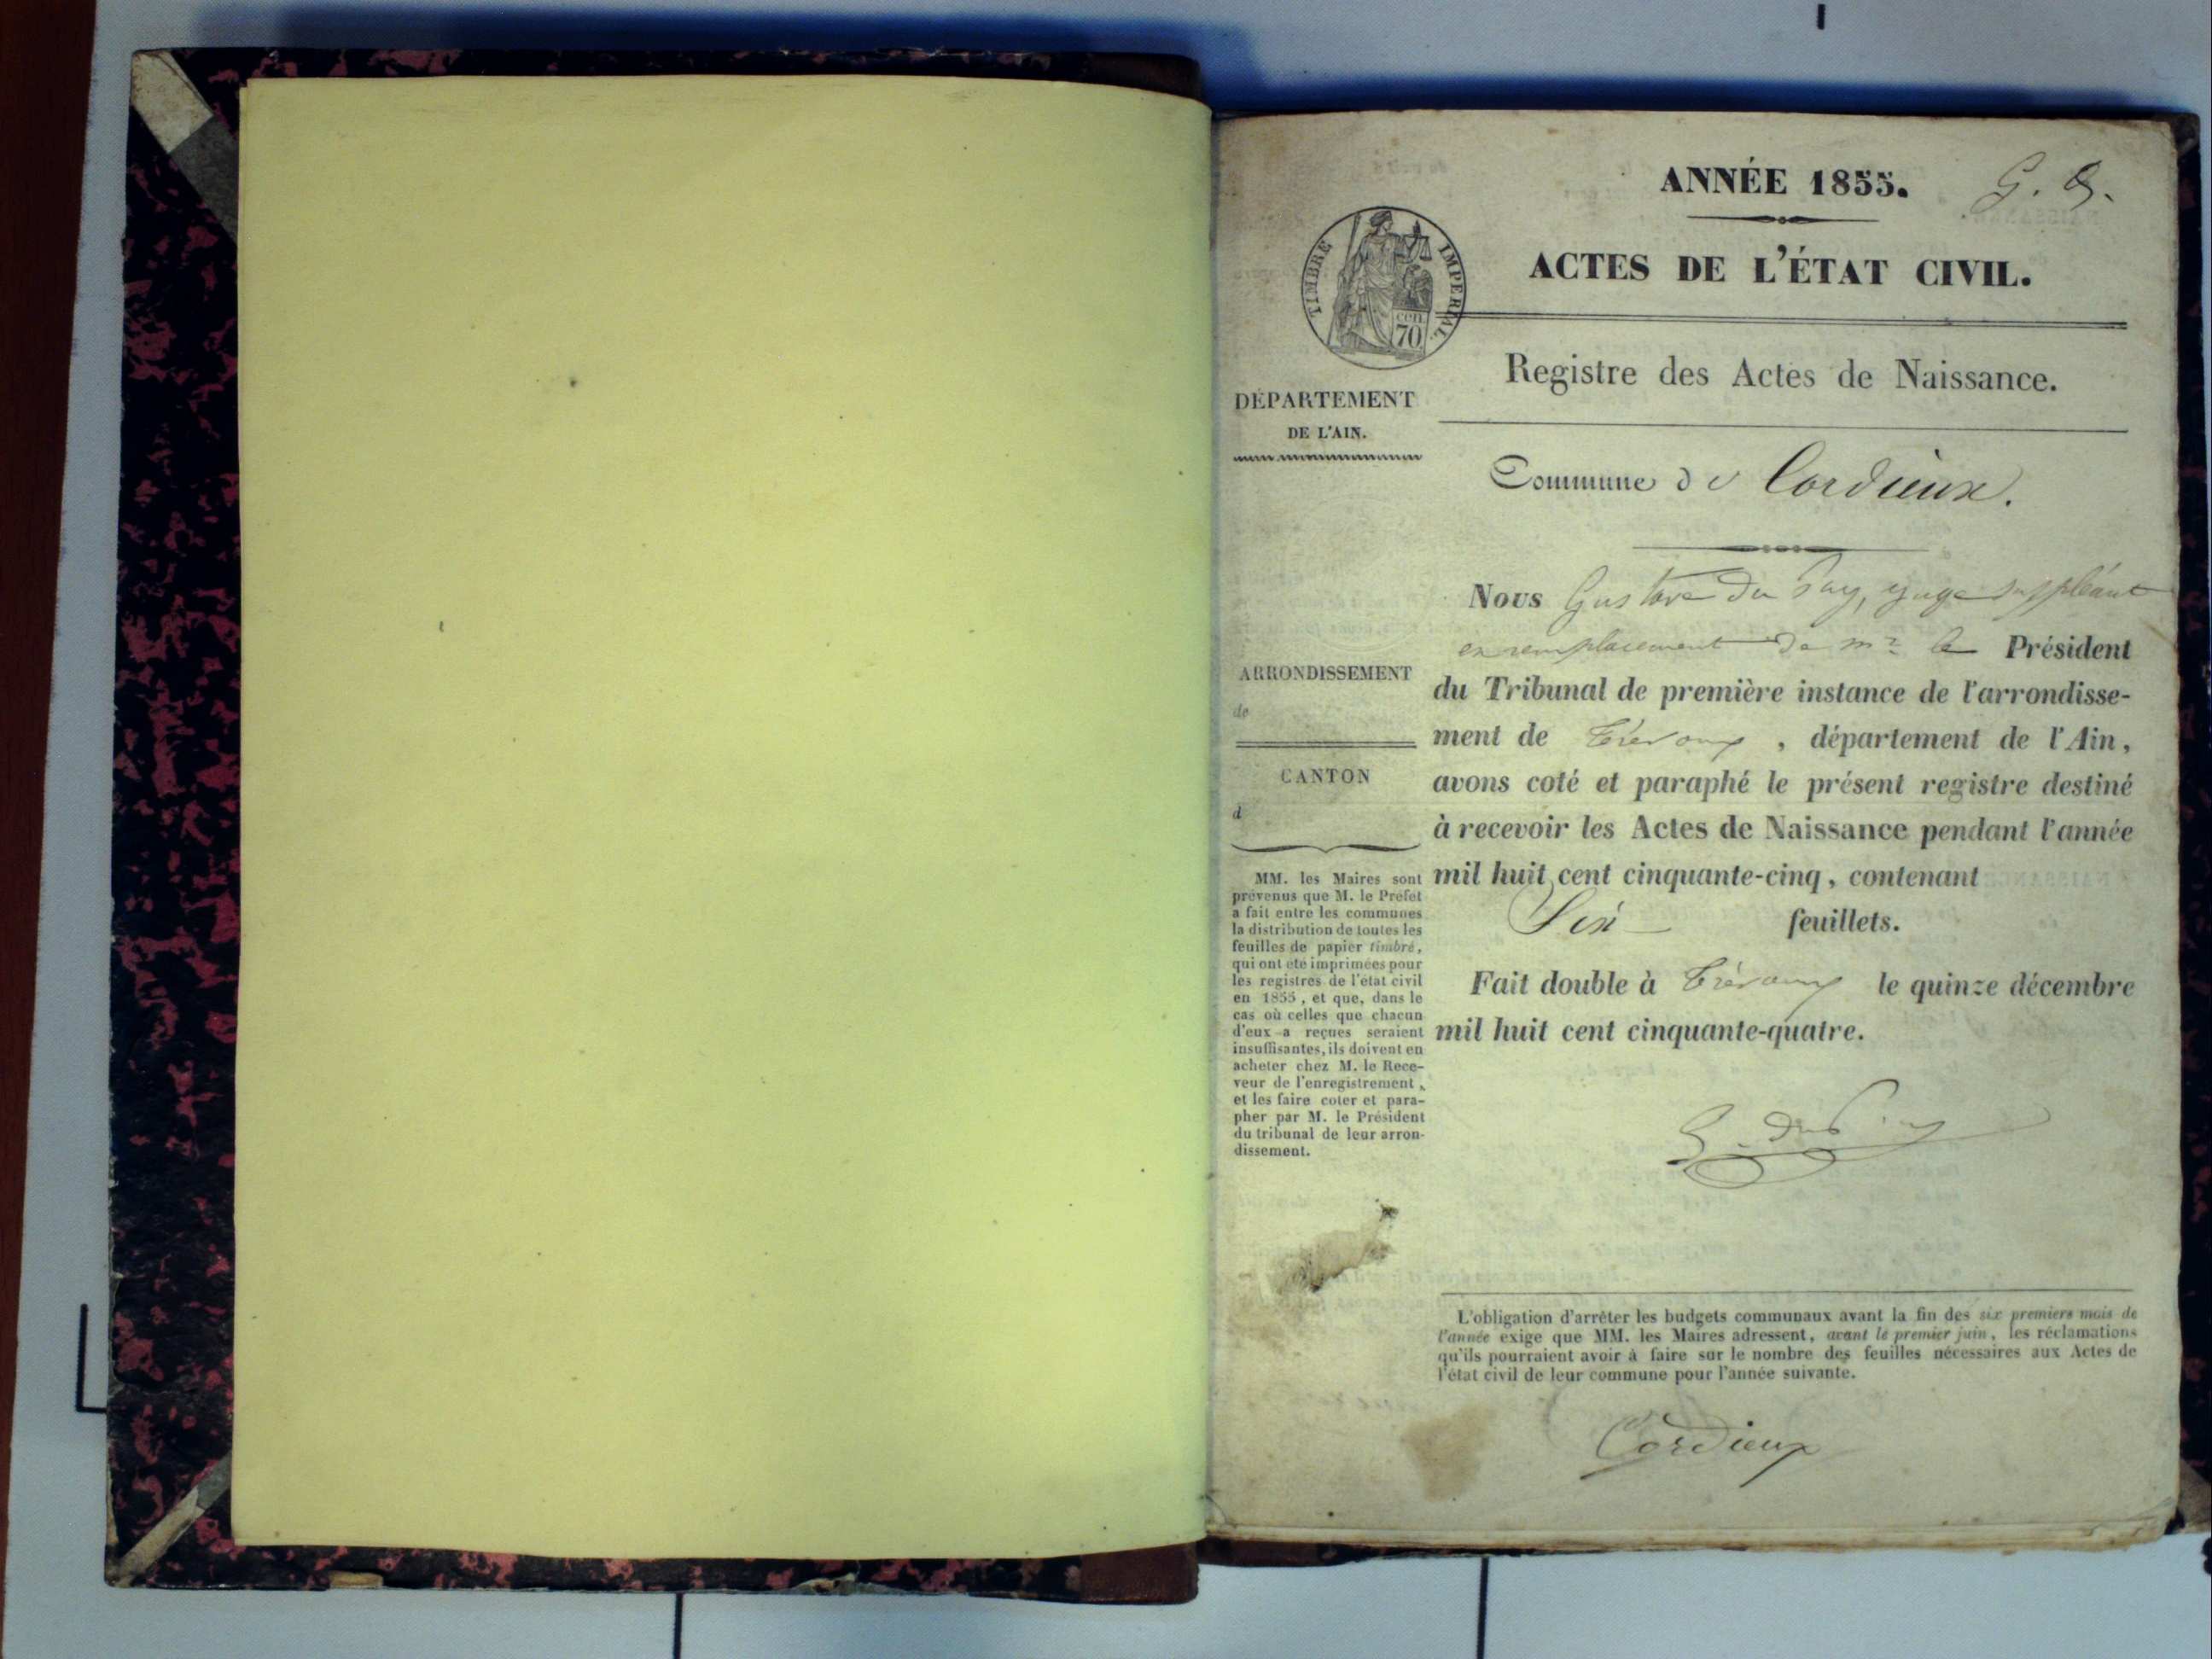 ANNÉE 1855. G. D.
ACTES DE L'ÉTAT CIVIL.
TIMBRE IMPERIAL
cen.
70
Registre des Actes de Naissance.
DÉPARTEMENT
DE L'AIN.
Commune de Cordieux.
Nous Gustave du, juge suppléant
en remplacement de mr le Président
du Tribunal de première instance de l'arrondisse-
ment de Trévoux, département de l'Ain,
avons coté et paraphé le présent registre destiné
à recevoir les Actes de Naissance pendant l'année
mil huit cent cinquante-cinq, contenant
Six feuillets.
Fait double à Trévoux le quinze décembre
mil huit cent cinquante-quatre.
ARRONDISSEMENT
de
CANTON
d
MM. les Maires sont
prévenus que M. le Préfet
a fait entre les communes
la distribution de toutes les
feuilles de papier timbré,
qui ont été imprimées pour
les registres de l'état civil
en 1855, et que, dans le
cas où celles que chacun
d'eux a reçues seraient
insuffisantes, ils doivent en
acheter chez M. le Rece-
veur de l'enregistrement,
et les faire coter et para-
pher par M. le Président
du tribunal de leur arron-
dissement.
L'obligation d'arrêter les budgets communaux avant la fin des six premiers mois de
l'année exige que MM. les Maires adressent, avant le premier juin, les réclamations
qu'ils pourraient avoir à faire sur le nombre des feuilles nécessaires aux Actes de
l'état civil de leur commune pour l'année suivante.
Cordieux